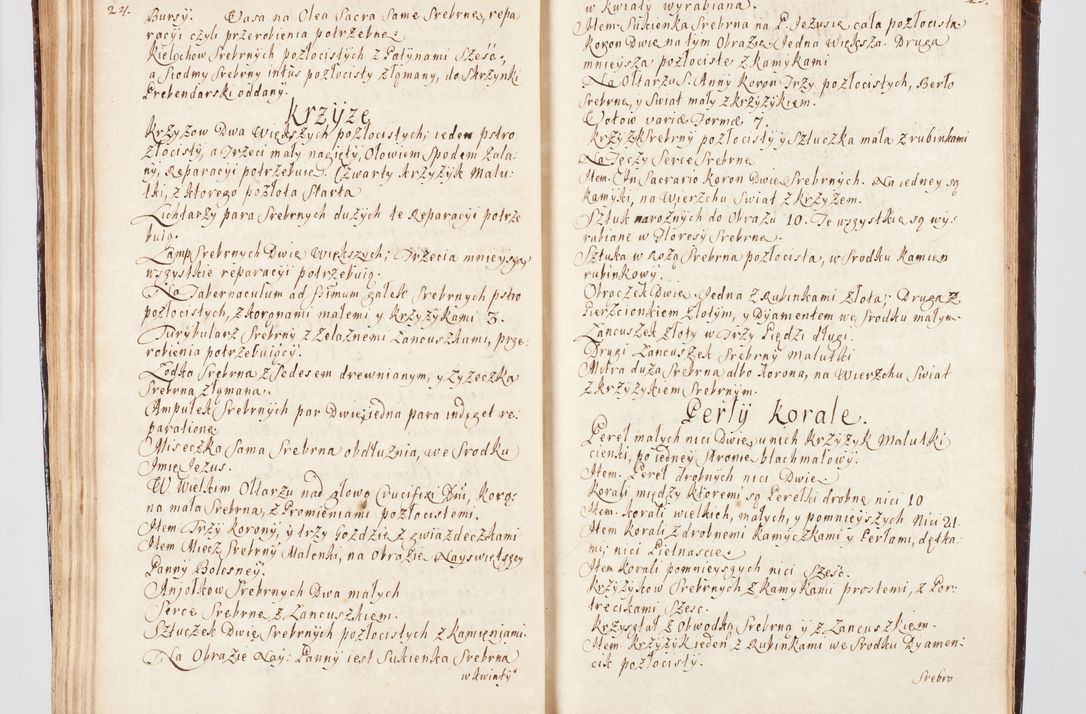 24.
Bursy. Vasa na Olea Sacra Same Srebrne, repa-
racyi czyli przerobienia potrzebne.
Kielichow Srebrnych pozłocistych z Patynami Sześć,
a Siodmy Srebrny intus pozłocisty złąmany, do Skrzynki
Prebendarski oddany.
Krzyże
Krzyzow Dwa Większych pozłocistych; ieden pstro
złocisty, a Trzeci mały nagięty, Ołowiem Spodem Zala-
ny, Reparacyi potrzebuie. Czwarty Krzyzyk Malu-
tki, z ktorego pozłota Starta
Lichtarzy para Srebrnych duzych te Reparacyi potrze
buią.
Lamp Srebrnych Dwie Większych; Trzecia mnieysza,
wszystkie reparacyi potrzebuią.
Na Tabernaculum ad SSimum gałek Srebrnych pstro
pozłocistych, z koronami małemi y krzyzykami 3.
Turybularz Srebrny z Zelaznemi Łancuszkami, prze-
robienia potrzebuiący.
Łodka Srebrna z Pedesem drewnianym, y Łyzeczka
Srebrna złymana.
Ampułek Srebrnych par Dwie, iedna para indiget re-
paratione.
Miseczka Sama Srebrna obdłuznia, we Srodku
Imie Jezus.
W Wielkim Ołtarzu nad głową Crucifixi Dni, Koro-
na mała Srebrna, z Promieniami pozłocistemi.
Item Trzy korony, y trzy gozdzie z gwiazdeczkami
Item Miecz Srebrny Malonki, na Obrazie Nayswiętszey
Panny Bolesney.
Anjołkow Srebrnych Dwa małych
Serce Srebrne z Łancuszkiem.
Sztuczek Dwie Srebrnych pozłocistych z kamieniami.
Na Obrazie Nay: Panny iest Sukienka Srebrna
w kwiaty
w kwiaty wyrabiana.
Item Sukienka Srebrna na P. Jezusie cała pozłocista
Koron Dwie na tym Obrazie. Jedna Większa. Druga
mnieysza pozłociste z kamykami
Na Ołtarzu S. Anny Koron Trzy pozłocistych, Berło
Srebrne, y Swiat mały z krzyzykiem.
Votow variæ Formæ 7.
Krzyzyk Srebrny pozłocisty y Sztuczka mała z rubinkami
Na Teczy Serce Srebrne
Item. In Sacrario Koron Dwie Srebrnych. Na iedney są
Kamyki, na Wierzchu Swiat z krzyzem.
Sztuk naroznych do Obrazu 10. Te wszystkie są wy-
rabiane w Floresy Srebrne.
Sztuka w Rozą Srebrna pozłocista, w Srodku Kamien
rubinkowy.
Obraczek Dwie. Jedna z Rubinkami złota; Druga z
Pierzcionkiem złotym, y Dyamentem we Srodku małym.
Łancuszek złoty w Trzy Piędzi długi.
Drugi Łancuszek Srebrny Malutki
Mitra duza Srebrna albo Korona, na Wierzchu Swiat
z krzyzykiem Srebrnym.
Perły Korale.
Pereł małych nici Dwie, u nich Krzyzyk Malutki
cienki, po iedney Stronie blachmalowy.
Item. Pereł drobnych nici Dwie
Korali między ktoremi są Perełki drobne nici 10
Item. Korali wielkich, małych, y pomnieyszych Nici 21.
Item Korali z drobnemi Kamyczkami y Perłami, dętka
mi; nici Pietnascie.
Item Korali pomnieyszych nici Sześć.
Krzyzykow Srebrnych z Kamykami prostemi, z Por-
trecikami Szesc.
Krzyształ z Obwodką Srebrną y z Łancuszkiem.
Item Krzyzyk ieden z Rubinkami we Srodku Dyamen-
cik pozłocisty.
Srebro